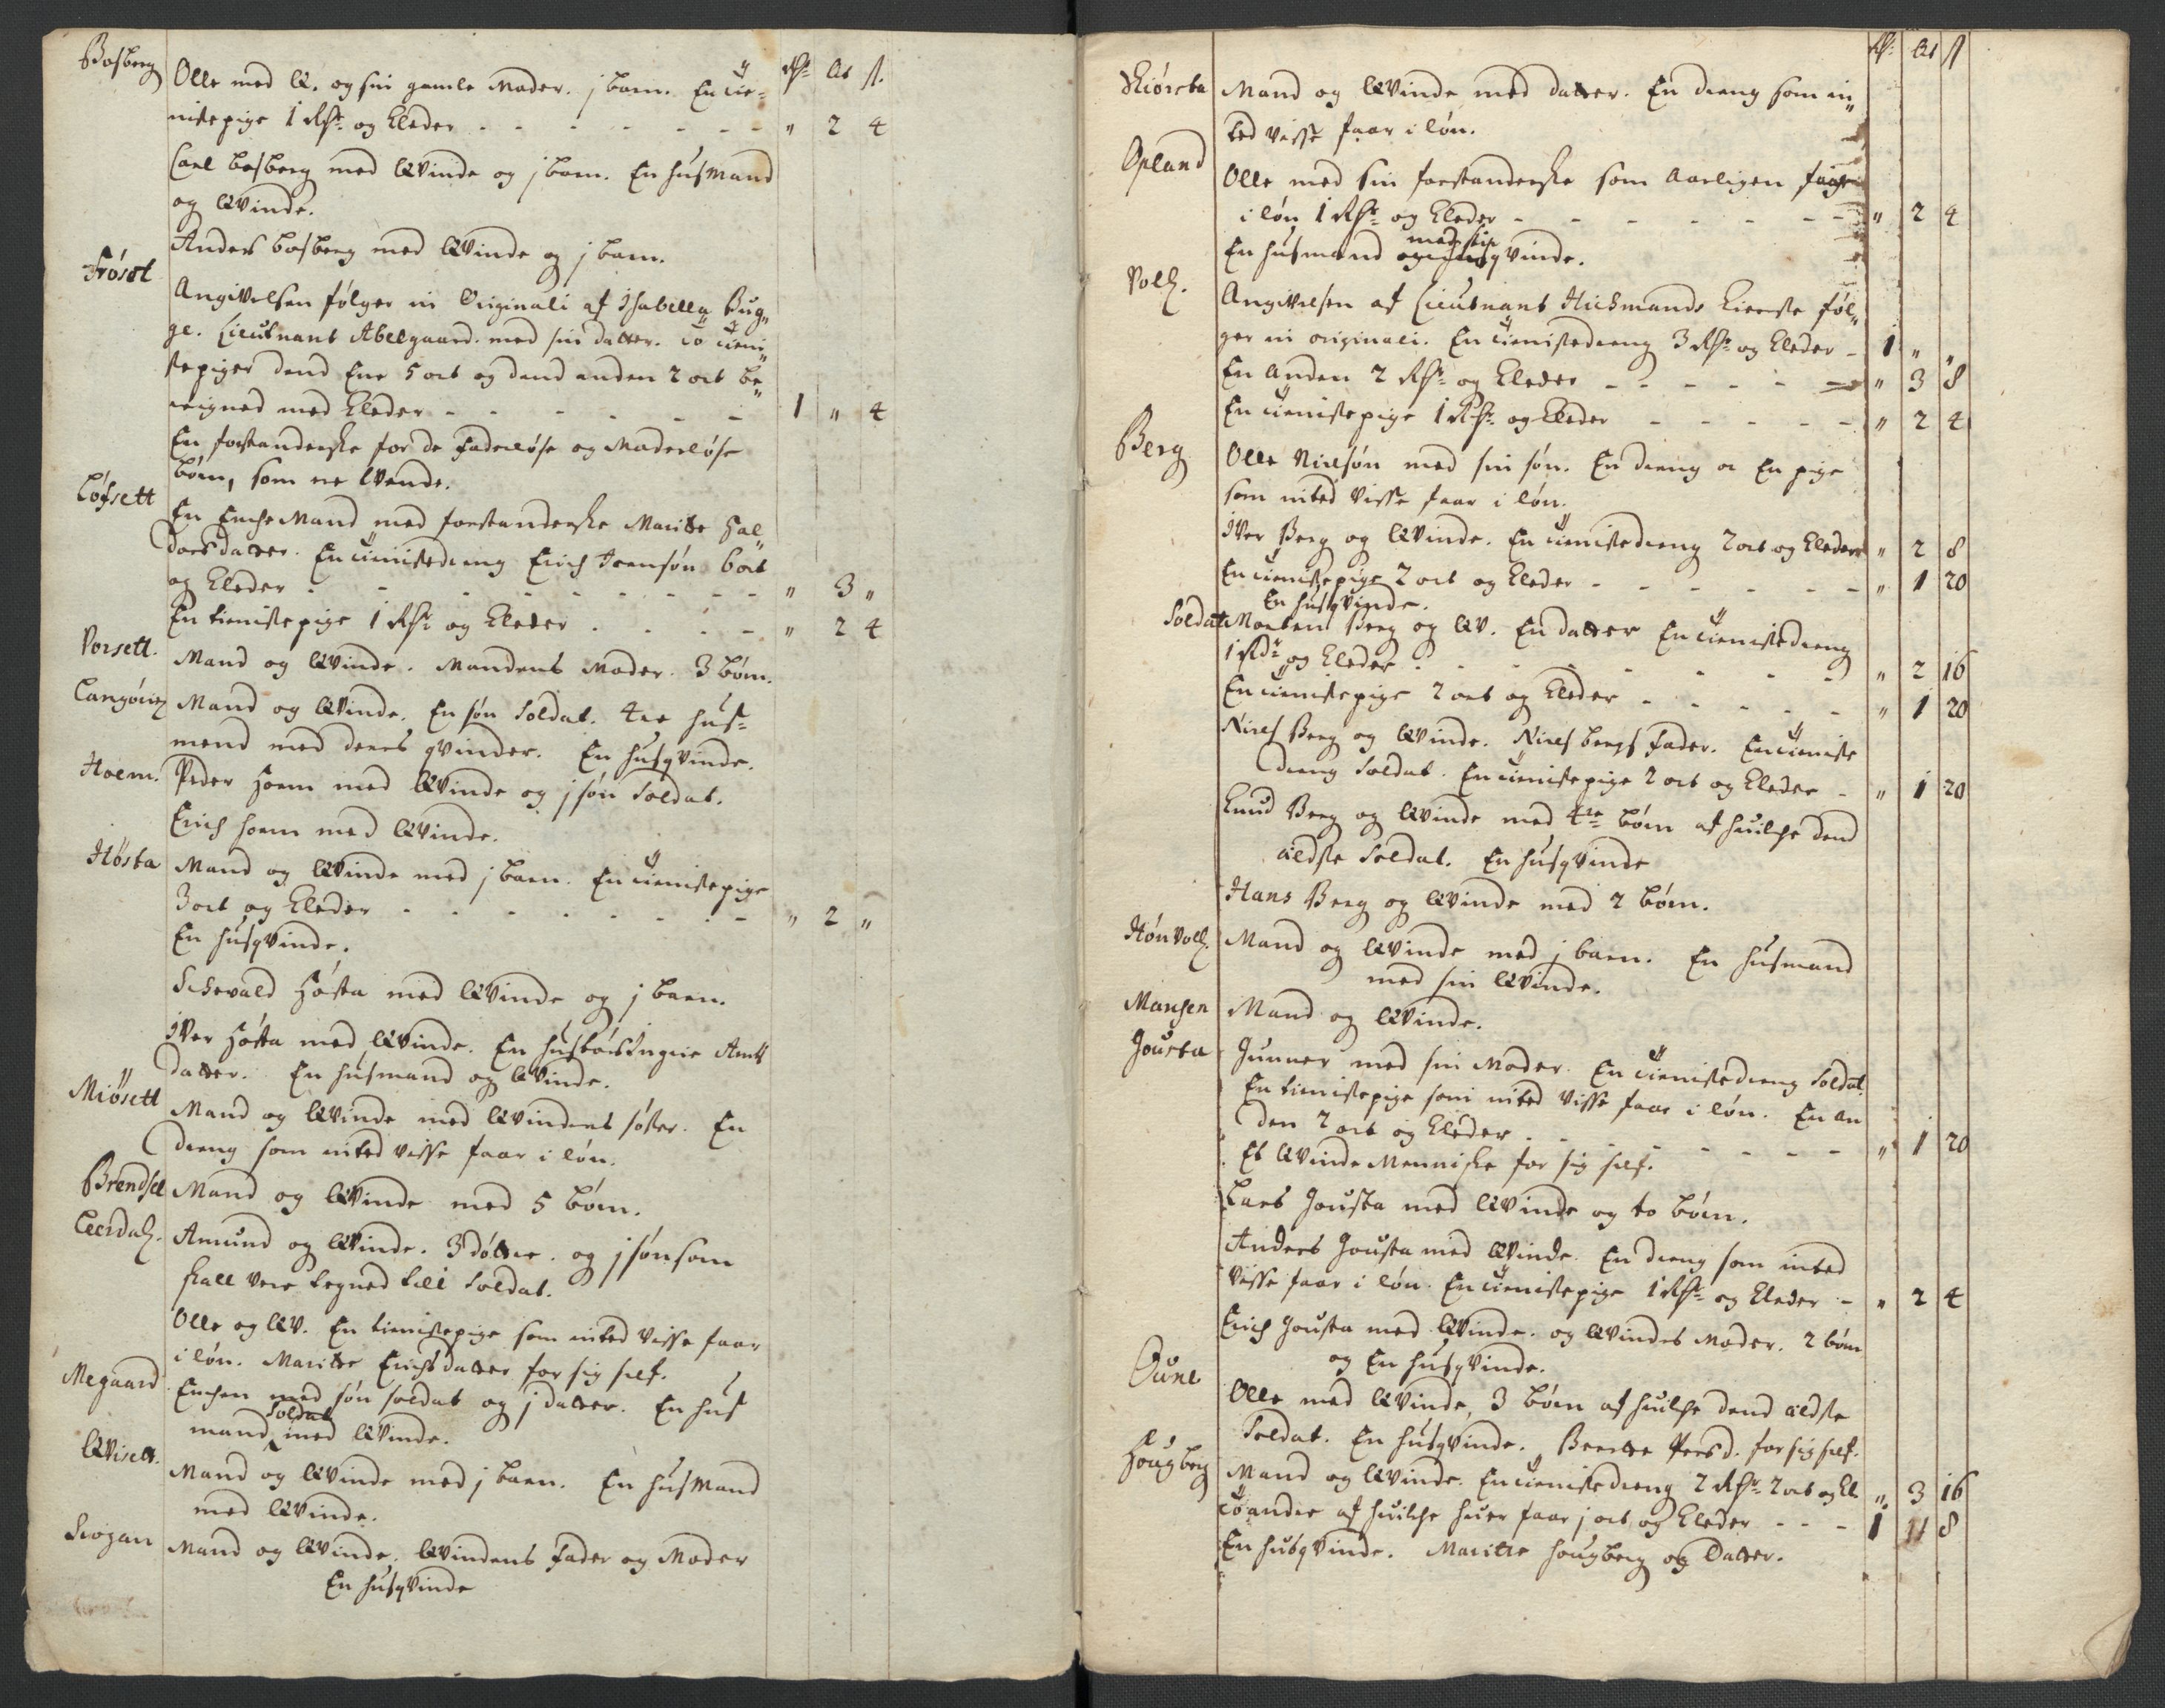 Rd: Ort ß.
Bosberg Olle med Q. og sin gamle Moder. j barn. En tie-
nistepige 1 Rdr og Kleder - - - " 2 4
Carl bosberg med Qvinde og j barn. En husmand
og Qvinde.
Anders bosberg med Qvinde og j barn.
Fröset Angivelsen følger in Originali af Isabella Bug-
ge. Lieutnant Abelgaard. med sin datter. to tieni-
stepiger dend Ene 5 ort og dend anden 2 ort be-
reigned med Kleder - - - 1 " 4
En forstanderske for de Faderløse og Moderløse
børn, som er
Löfsett En Enche Mand med forstanderske Maritte Hal-
dorsdatter. En tienistedreng Erich Ivensøn 6 ort
og Kleder - - - " 3 "
En tienistepige 1 Rdr og Kleder - - - " 2 4
Vorsett. Mand og Qvinde. Mandens Moder. 3 børn.
Mand og Qvinde. En søn Soldat. tre hus-
mend med deres qvinder. En husqvinde.
Hoem. Peder hoem med Qvinde og j søn Soldat.
Erich hoem med Qvinde.
Hösta Mand og Qvinde med j barn. En tienistepige
3 ort og Kleder - - - " 2 "
En husqvinde.
Sichevald Hösta med Qvinde og j barn.
Iver Hösta med Qvinde. En
datter. En husmand og Qvinde.
Miösett Mand og Qvinde med Qvindens søster. En
dreng som inted visse faar i løn.
Brendsel Mand og Qvinde med 5 børn.
Leerdal. Amund og Qvinde. 3 døttre. og j søn som
skall vere tegned till Soldat.
Olle og QV. En tienistepige som inted visse faar
i løn. Maritte Erichsdatter for sig self.
Megaard Enchen med søn soldat og j datter. En hus
soldat
mand med Qvinde.
Qvisett. Mand og Qvinde med j barn. En husmand
med Qvinde.
Mand og Qvinde. Qvindens Fader og Moder
En husqvinde
Rd: Ort ß
Skiörsta Mand og Qvinde med datter. En dreng som in-
ted visse faar i løn.
Opland Olle med sin forstanderske som Aarligen faar
i løn 1 Rdr og Kleder - - - " 2 4
med sin
En husmand qvinde.
Voll. Angivelsen af Lieutnant Hichmands Kieriste føl-
ger in originali. En tienistedreng 3 Rdr og Kleder - 1 " "
En anden 2 Rdr og Kleder - - - " 3 8
En tienistepige 1 Rdr og Kleder - - - " 2 4
Berg Olle Nielsøn med sin søn. En dreng oc En pige
som inted visse faar i løn.
Iver Berg og Qvinde. En tienistedreng 7 ort og Kleder " 2 8
En tienistepige 2 ort og Kleder - - - " 1 20
En husqvinde.
Soldat Morten Berg og QV. En datter En tienistedreng
1 Rdr og Kleder - - - " 2 16
En tienistepige 2 ort og Kleder - - - " 1 20
Niels Berg og Qvinde. Niels bergs Fader. En tieniste
dreng Soldat. En tienistepige 2 ort og Kleder - " 1 20
Knud Berg og Qvinde med 4re børn af huilche dend
eldste Soldat. En husqvinde
Hans Berg og Qvinde med 2 børn.
Hönvoll. Mand og Qvinde med j barn. En husmand
med sin Qvinde.
Mansen Mand og Qvinde.
Gousta Gunner med sin Moder. En tienistedreng Soldat.
En tienistepige som inted visse faar i løn. En an
den 2 ort og Kleder - - - " 1 20
Et Qvinde Menniske for sig self.
Lars Gousta med Qvinde og to børn.
Anders Gousta med Qvinde. En dreng som inted
visse faar i løn. En tienistepige 1 Rdr og Kleder - " 2 4
Erich Gousta med Qvinde. og Qvindes Moder. 2 børn
og En husqvinde.
Oune Olle med Qvinde, 3 børn af huilche dend eldste
Soldat. En husqvinde. Beritte Persd. for sig self.
Hougberg Mand og Qvinde. En tienistedreng 2 Rdr 2 ort og Kl. " 3 16
to andre af huilche huer faar j ort og Kleder - - - 1 11 8
En husqvinde. Maritte Hougberg og Datter.